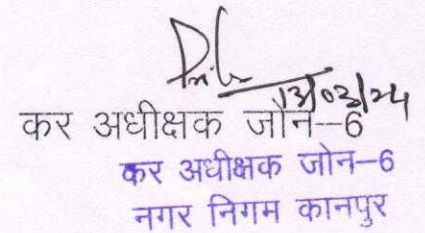 13/03/24
कर अधीक्षक जौन–6
कर अधीक्षक जोन–6
नगर निगम कानपुर